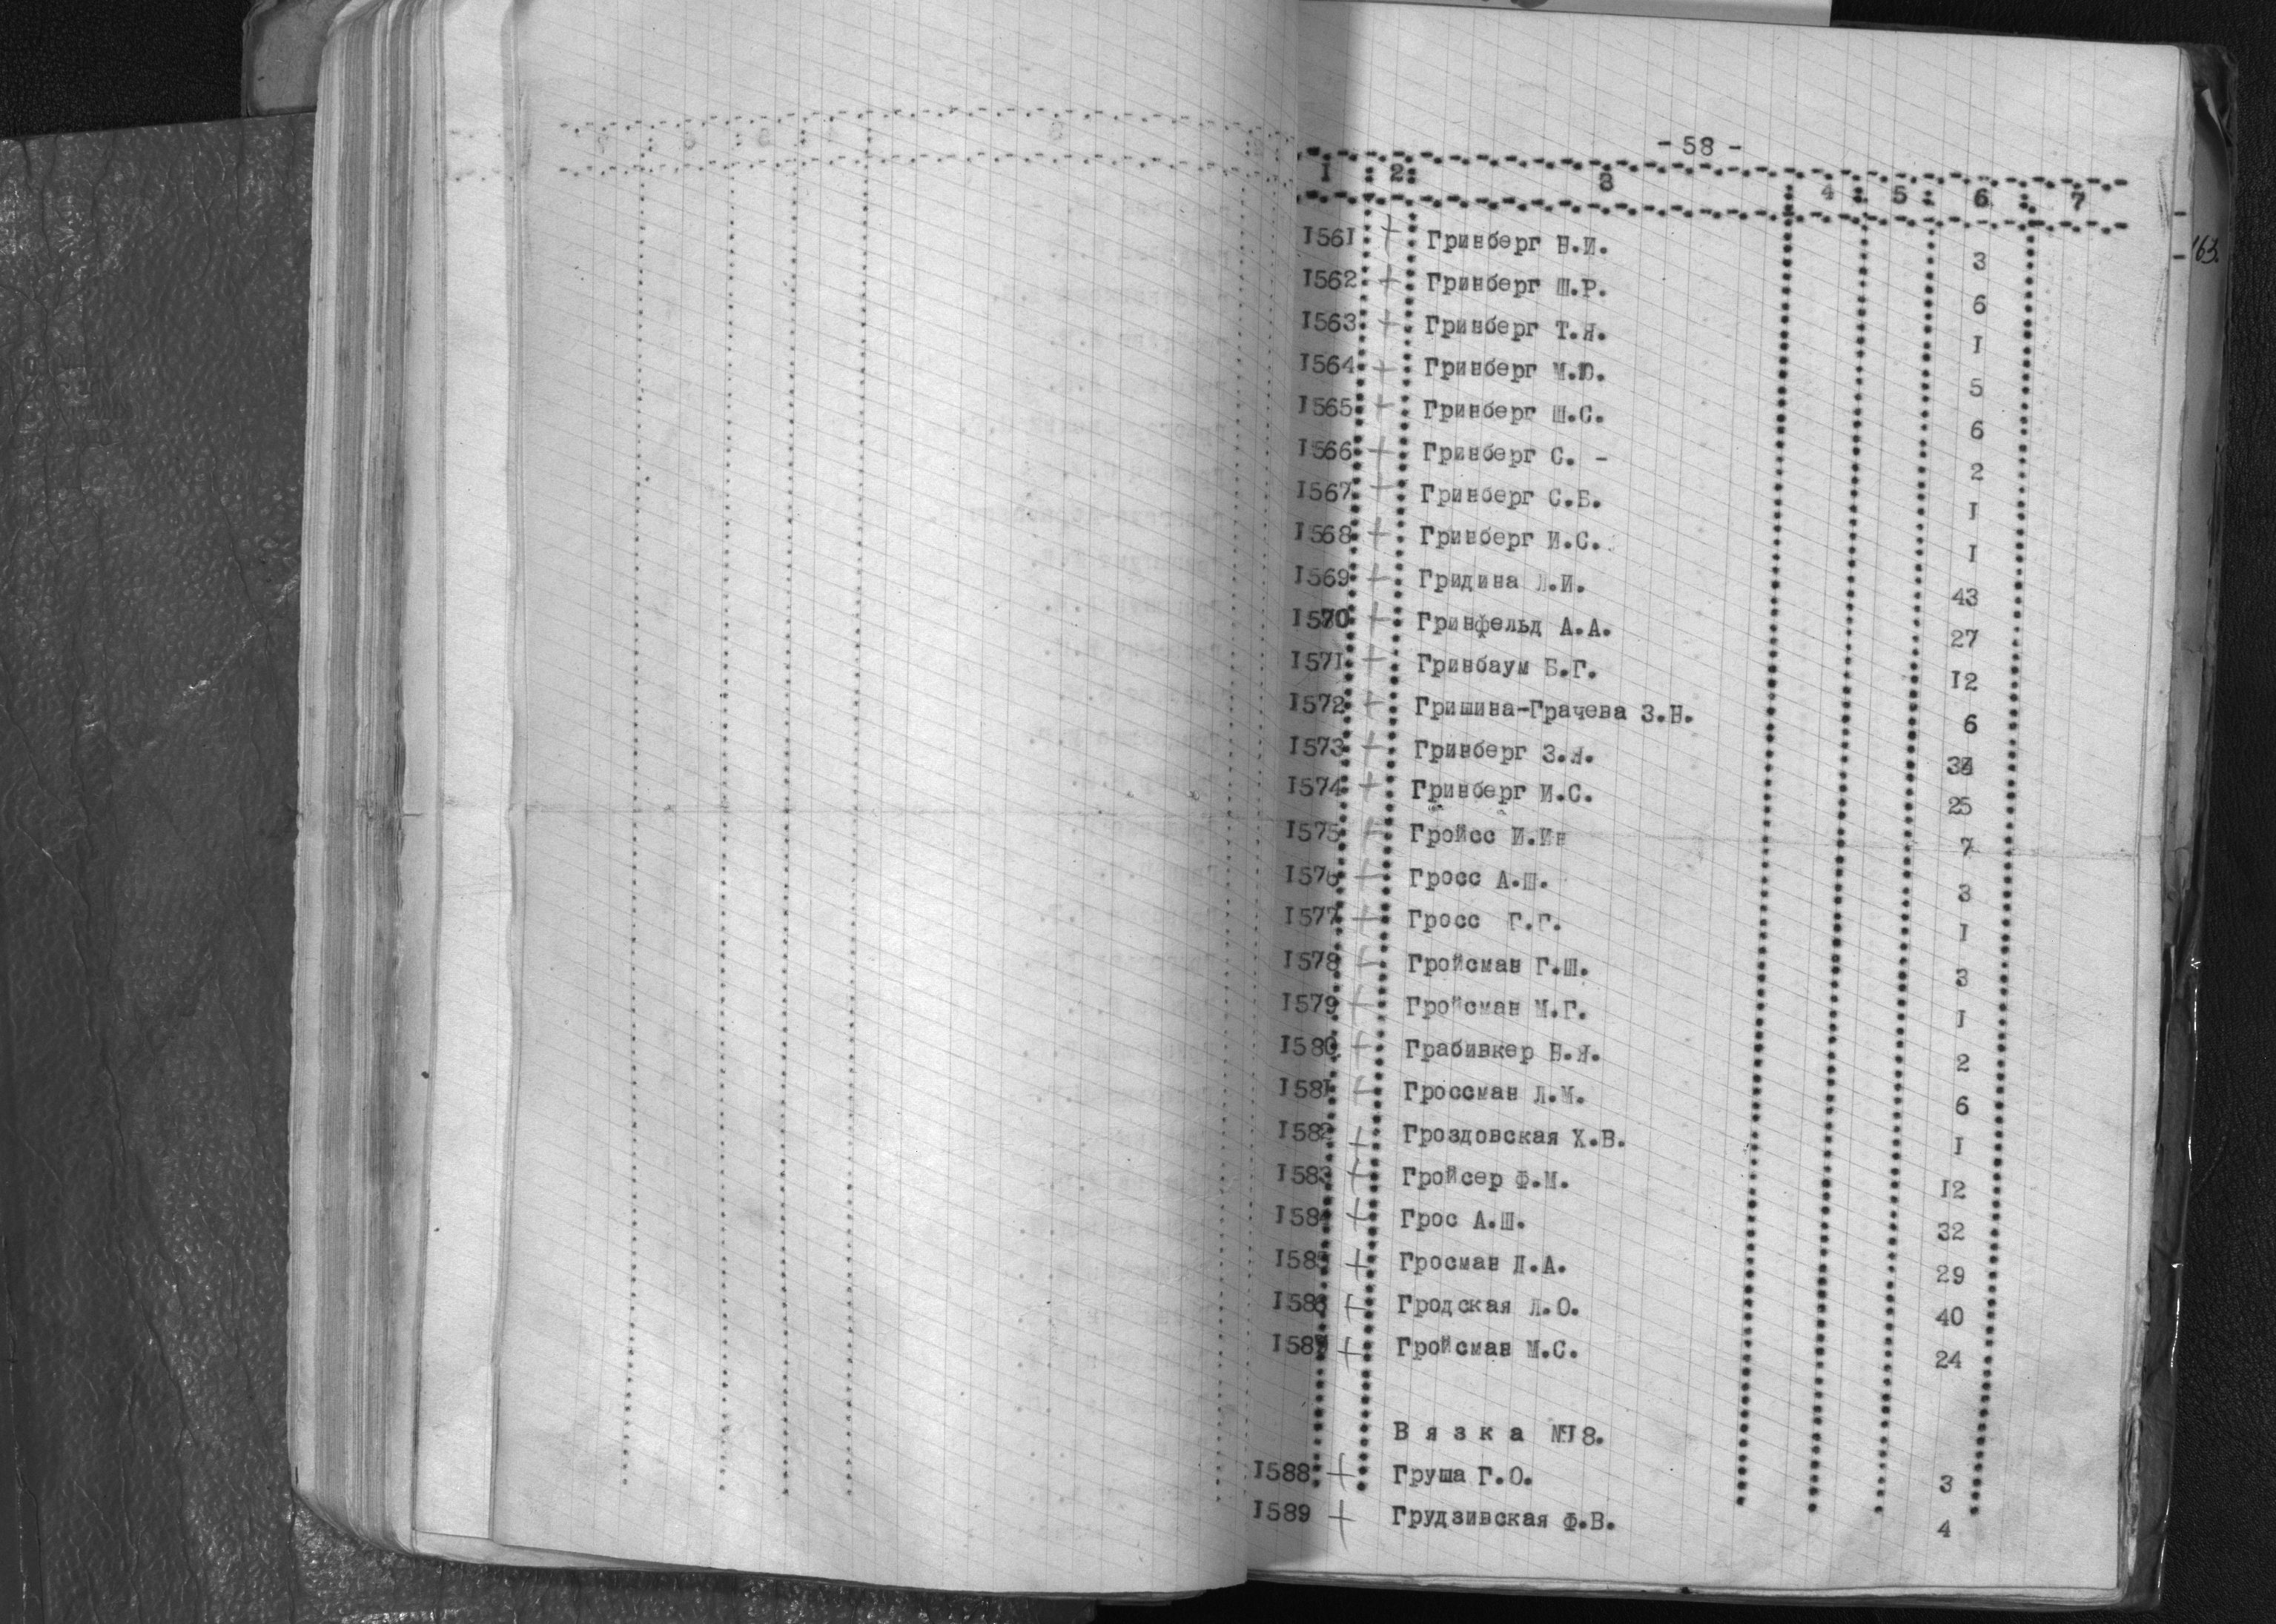 - 58 -
1 2 3 4 5 6 7
163.
1561 + Гринберг Н.И. 3
1562 + Гринберг Ш.Р. 6
1563 + Гринберг Т.Я. 1
1564 + Гринберг М.Ю. 5
1565 + Гринберг Ш.С. 6
1566 + Гринберг С. - 2
1567 + Гринберг С.Б. 1
1568 + Гринберг И.С. 1
1569 + Гридина Л.И. 43
1570 + Гринфельд А.А. 27
1571 + Гринбаум Б.Г. 12
1572 + Гришина-Грачева З.Н. 6
1573 + Гринберг З.Я.
1574 + Гринберг И.С. 25
1575 + Гройсс 7
1576 + Гросс А.Ш. 3
1577 + Гросс Г.Г. 1
1578 + Гройсман Г.Ш. 3
1579 + Гройсман М.Г. 1
1580 + Грабивкер Н.Я. 2
1581 + Гроссман Л.М. 6
1582 + Гроздовская Х.В. 1
1583 + Гройсер Ф.М. 12
1584 + Грос А.Ш. 32
1585 + Гросман Л.А. 29
1586 + Гродская Л.О. 40
1587 + Гройсман М.С. 24
Вязка №18.
1588 + Груша Г.О. 3
1589 + Грудзинская Ф.В. 4